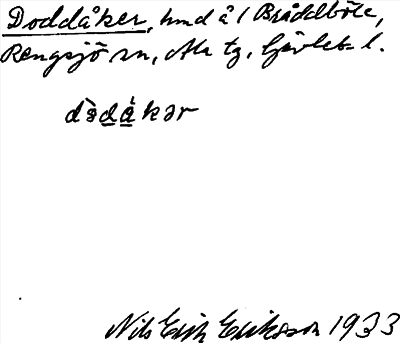 Doddåker, hmd å 1 Bråddböle,
Rengsjö sn, Ala tg, Gävleb. l.
dɔ̀dåkər
Nils Erik Eriksson 1933